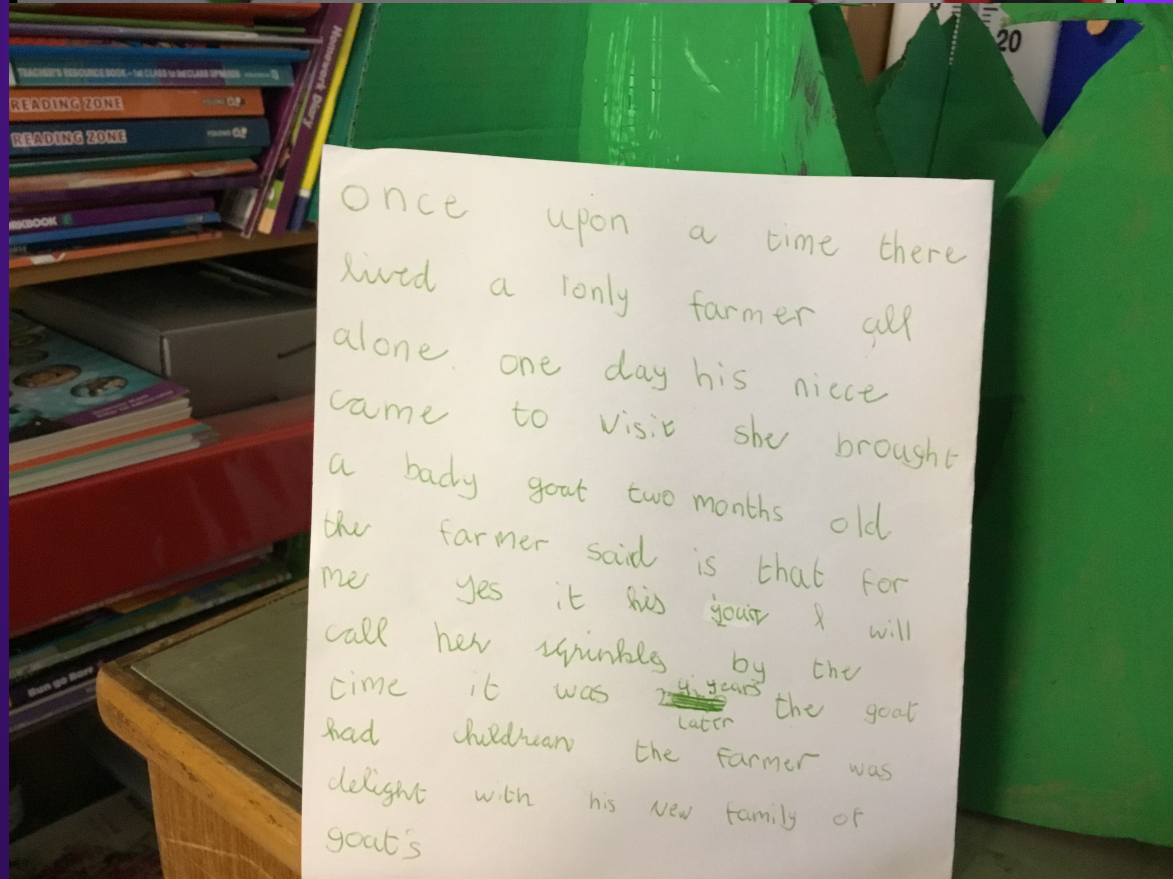 20
Homework Diary
TEACHER'S RESOURCE BOOK - 1st CLASS to 2nd CLASS UPWARDS
READING ZONE FOLENS
READING ZONE FOLENS
RKBOOK
Bun go Barr
once upon a time there
lived a lonly farmer all
alone. one day his niece
came to visit she brought
a bady goat two months old
the farmer said is that for
me yes it his your I will
call her sprinkles by the
time it was years the goat
later
had childrean the farmer was
delight with his new family of
goat's